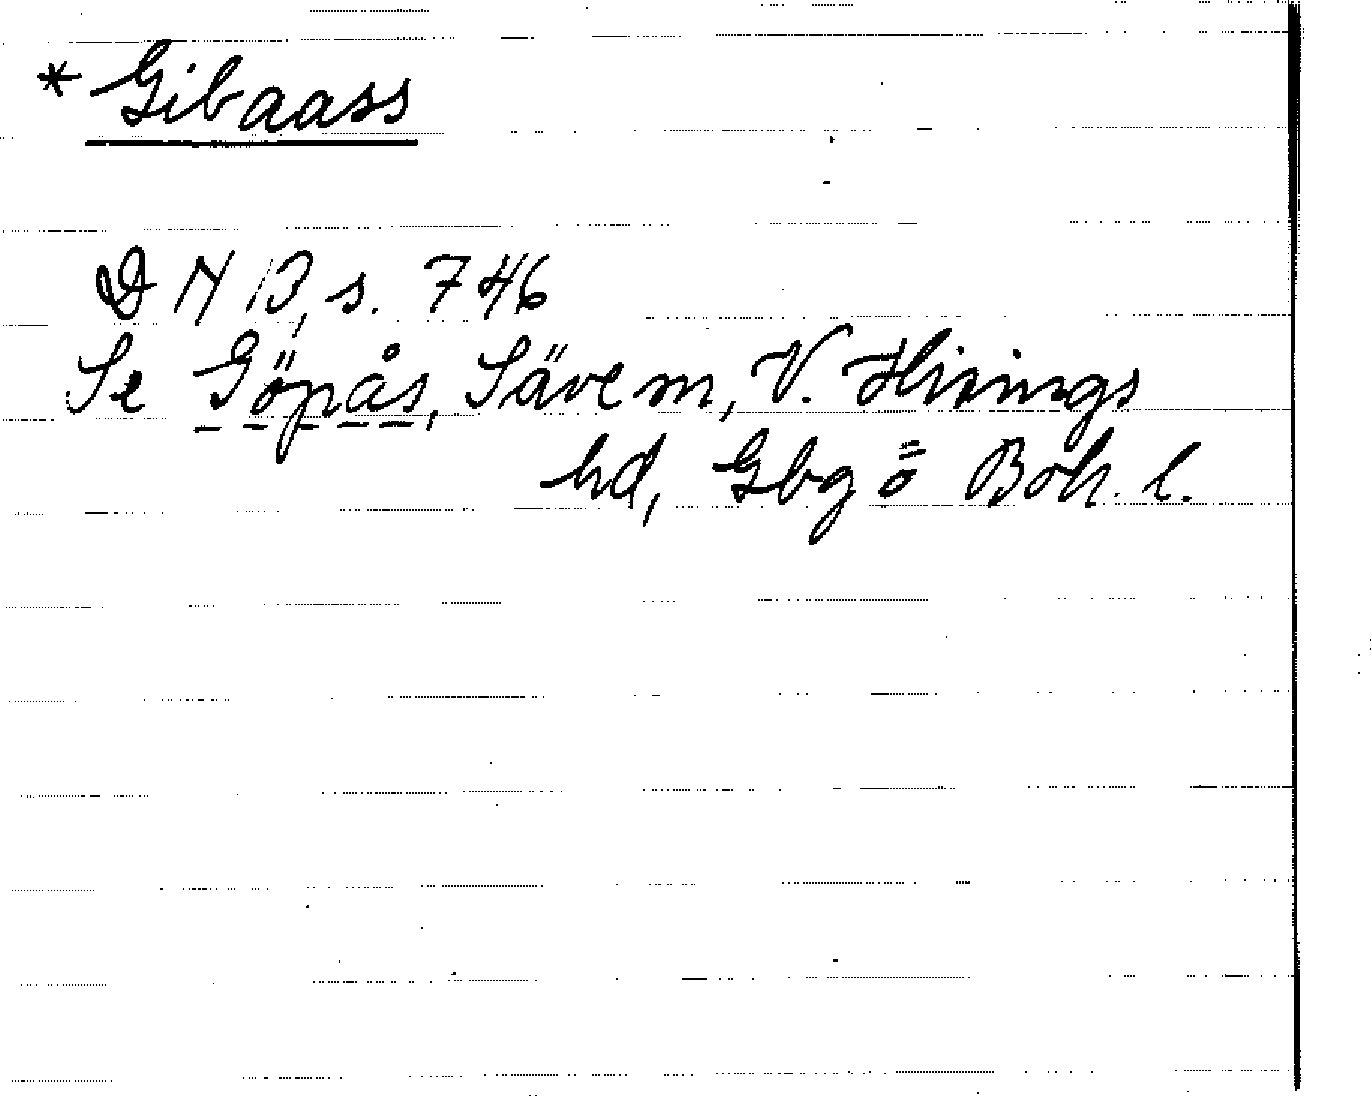 * Gibaass
DN 13, s. 746
Se Göpås, Säve sn, V. Hisings
hd, Gbg o Boh. l.